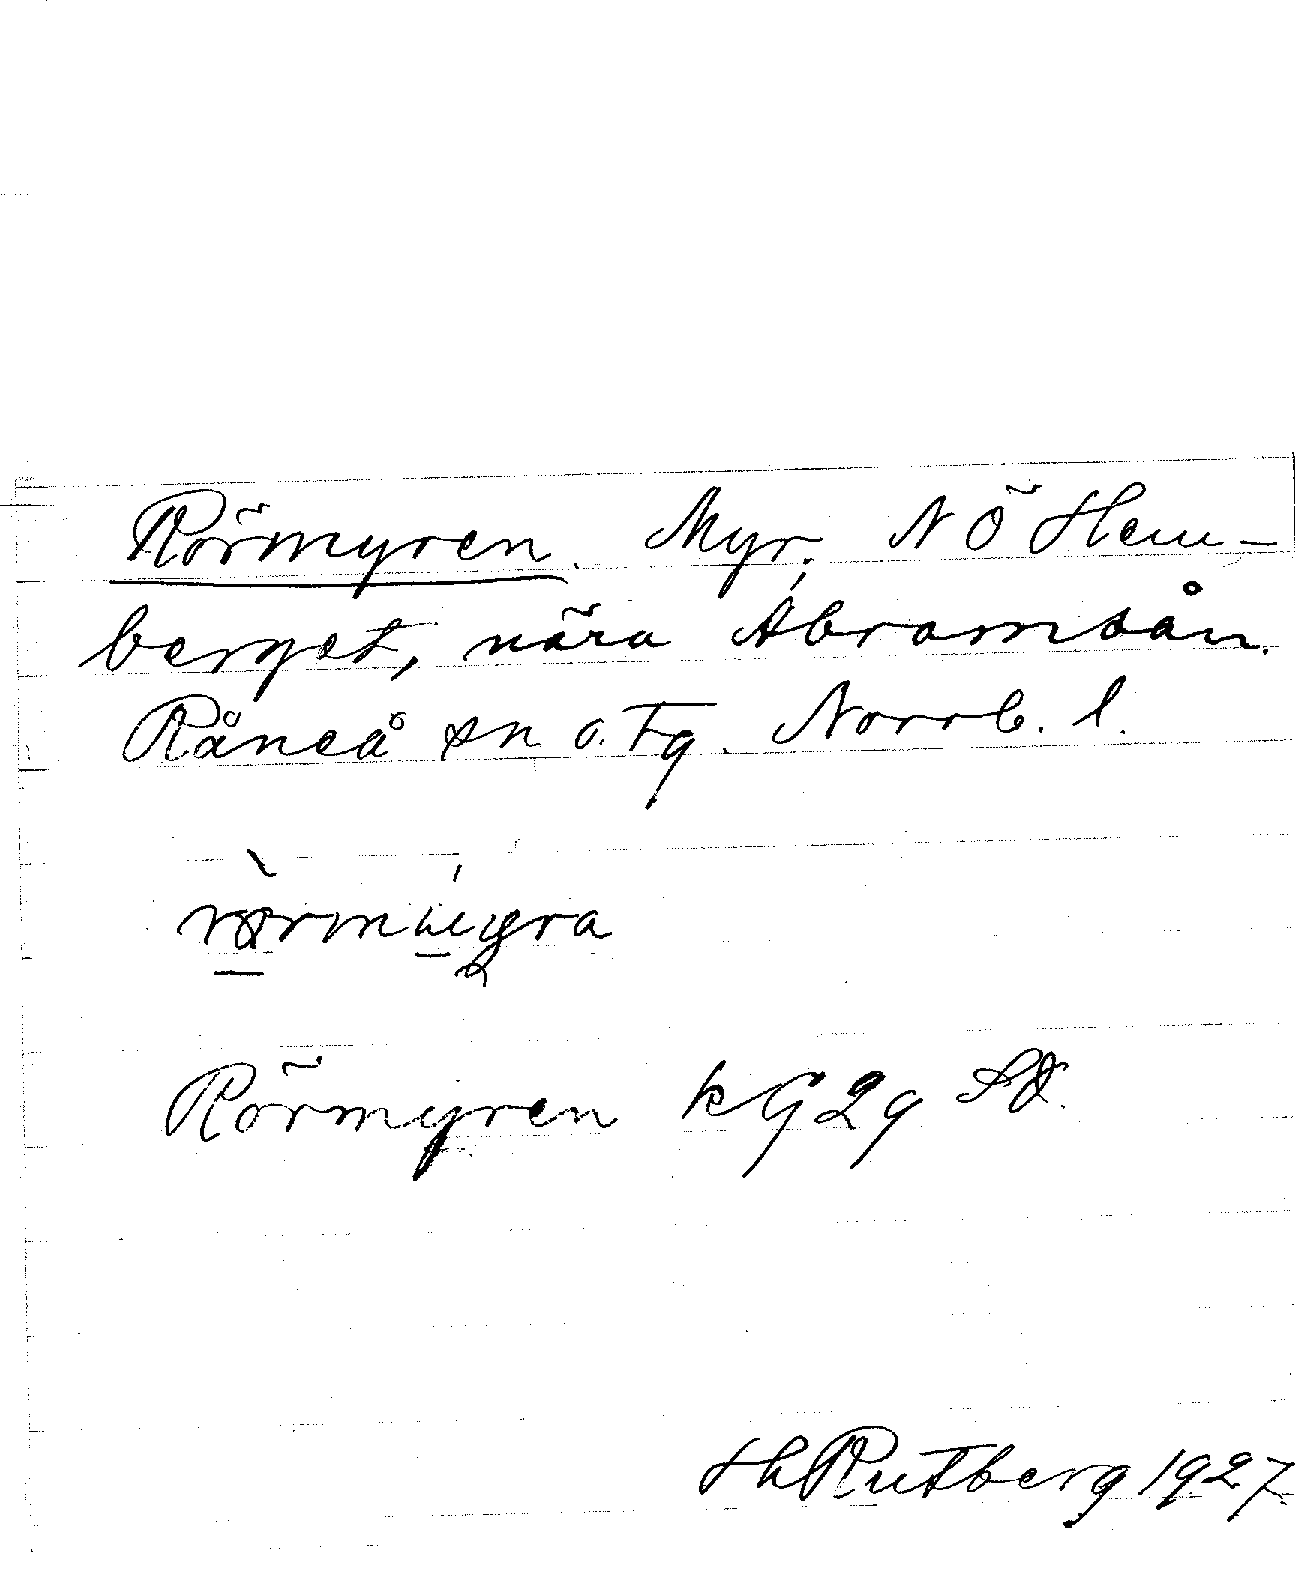 Rörmyren. Myr. NÖ Hem-
berget, nära Abramsån.
Råneå sn o. Tg. Norrb. l.
Rörmyren kG29
Hl Rutberg 1927